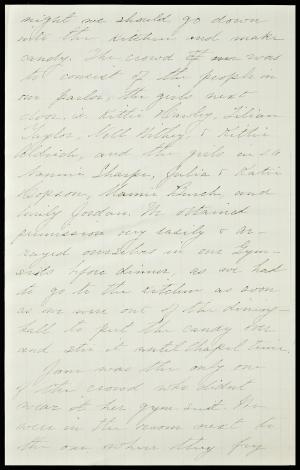 night we should go down
into the kitchen and make
candy. The crowd was
to consist of the people in
our parlor, the girls next
door, Kittie Lilian
Taylor, Nell & Kittie
Aldrich, and the girls in
Nannie Sharpe, Julia & Katie
Hopson, Mamie and
Emily Jordan. We obtained
permission very easily & ar-
rayed ourselves in our Gym-
suits before dinner, as we had
to go to the kitchen as soon
as we were out of the dining-
hall to put the candy over
and stir it until chapel time.
Jane was the only one
of the crowd who didn't
wear her gym suit. We
were in the room next to
the one where they fry